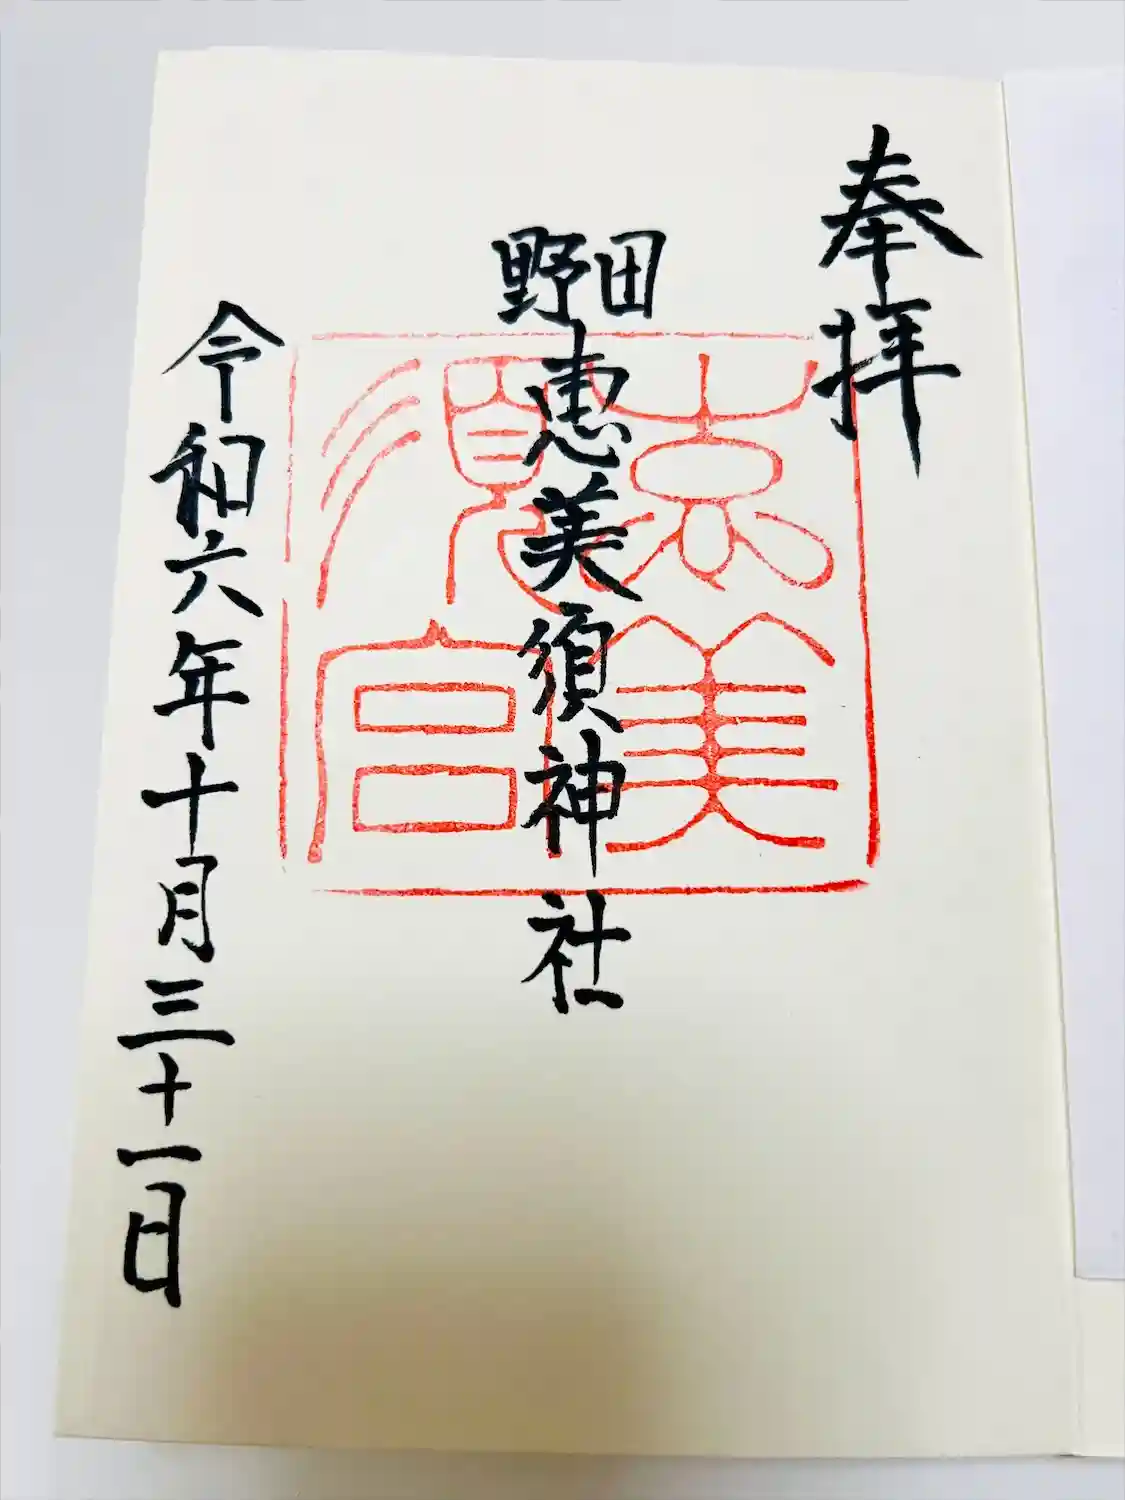 奉拝
野田
恵美須神社
恵美
須宮
令和六年十月三十一日